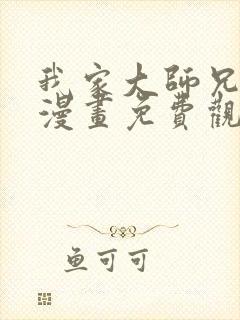 我家大師兄
漫畫免費觀
鱼可可